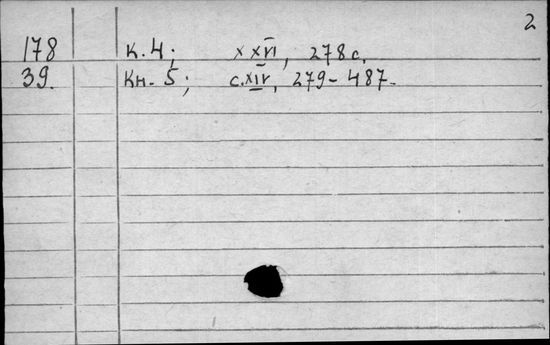 2
178 К. 4; XXVI, 278 с.
39. Кн. 5; с. XIV, 279-487.